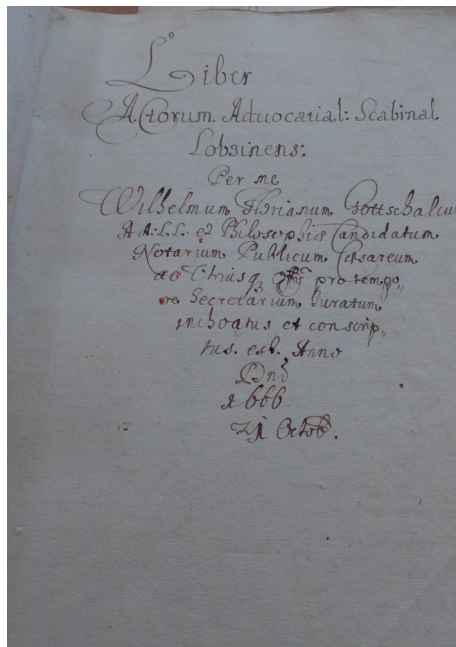 Liber
Actorum Advocatial: Scabinal
Lobsinens:
Per me
Wilhelmum Gottschalcu
A A: L.L. et Philosophiæ Candidatum
Notarium Publicum Cæsareum
ac pro tempo„
re Secretarium Juratum
inchoatus et conscrip„
tus. est. Anno
Dni
1666
21 Octob.